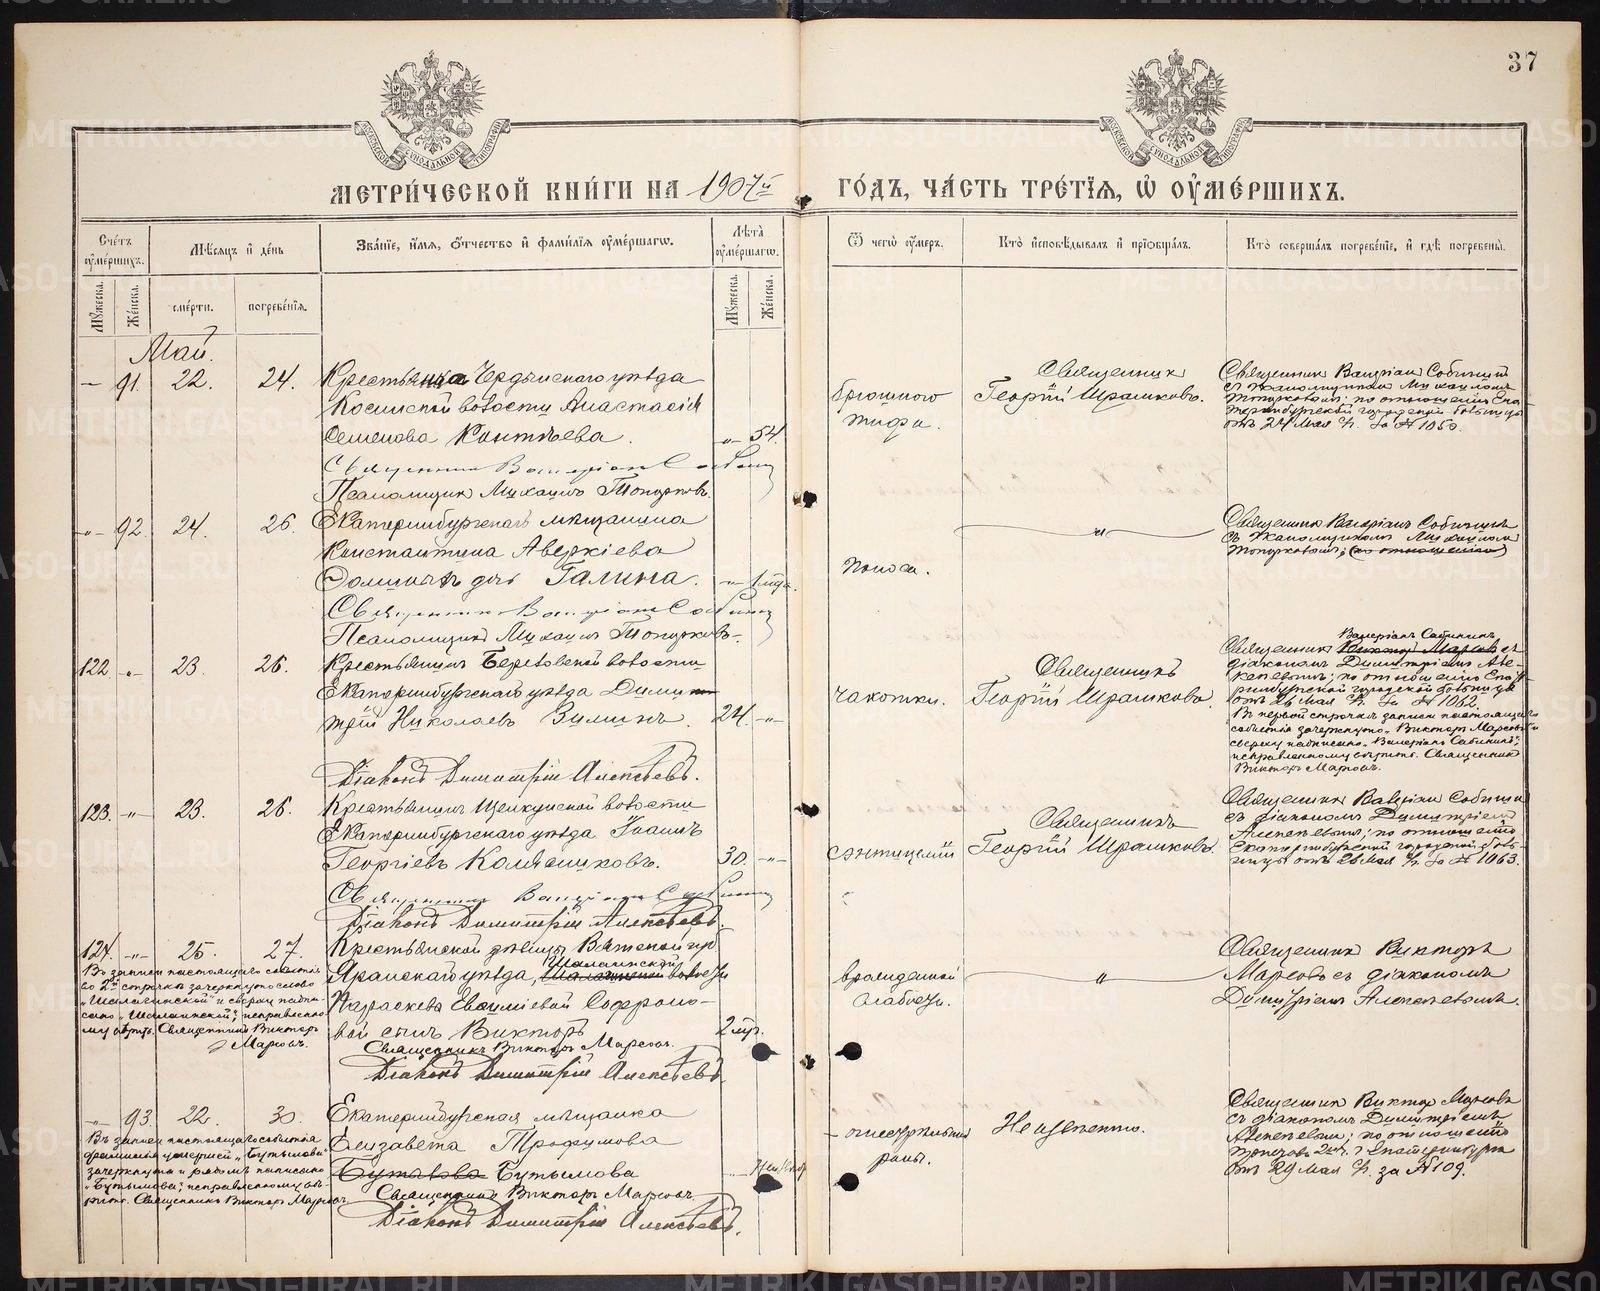 37
МЕТРИ́ЧЕСКОЙ КНИ́ГИ НА 1907й ГО́ДЪ, ЧА́СТЬ ТРЕ́ТІЯ, Ѡ ОУМЕ́РШИХЪ.
Сче́тъ оуме́ршихъ.
Мѣ́сяцъ и де́нь
Зва́ніе, и́мя, о́тчество и фами́лія оуме́ршагѡ.
Лѣта̀ оуме́ршагѡ.
Ѿ чегѡ̀ оу́меръ.
Кто̀ исповѣ́дывалъ и пріобща́лъ.
Кто̀ соверша́лъ погребе́ніе, и гдѣ̀ погребены̀.
Му́жеска.
Же́нска.
сме́рти.
погребе́нія.
Му́жеска.
Же́нска.
Май.
— 91. 22. 24.
Крестьянка Чердынскаго уѣзда
Косинской волости Анастасія
Семенова Контѣева. -"- 54.
Священникъ Валеріанъ Собининъ
Псаломщикъ Михаилъ Топорковъ.
брюшного
тифа.
Священникъ
Георгій Ирашковъ.
Священникъ Валеріанъ Собининъ
съ псаломщикомъ Михаиломъ
Топорковымъ; по отношенію Ека-
теринбургской городской больницы
отъ 24 Мая с/г. за № 1050.
-"- 92. 24. 26.
Екатеринбургскаго мѣщанина
Константина Аверкіева
дочь Галина. -"- 1 года.
Священникъ Валеріанъ Собининъ
Псаломщикъ Михаилъ Топорковъ.
поноса.
"
Священникъ Валеріанъ Собининъ
съ псаломщикомъ Михаиломъ
Топорковымъ; (по отношенію)
122 -"- 23. 26.
Крестьянинъ Березовской волости
Екатеринбургскаго уѣзда Дими-
трій Николаевъ Зилинъ. 24. -"-
Діаконъ Димитрій Алексѣевъ.
чахотки.
Священникъ
Георгій Ирашковъ.
Валеріанъ Сабининъ
Священникъ Викторъ Марсовъ съ
діакономъ Димитріемъ Але-
ксѣевымъ; по отношенію Екате-
ринбургской городской больницы
отъ 26 Мая с/г. за № 1062.
Въ первой строчкѣ записи настоящаго
событія зачеркнуто „Викторъ Марсовъ" и
сверху надписано „Валеріанъ Сабининъ";
исправленному вѣрить. Священникъ
Викторъ Марсовъ.
123. -"- 23. 26.
Крестьянинъ Щелкунской волости
Екатеринбургскаго уѣзда Іоаннъ
Георгіевъ Колмашковъ. 30. -"-
Священникъ Валеріанъ Собининъ
Діаконъ Димитрій Алексѣевъ.
Священникъ
Георгій Ирашковъ.
Священникъ Валеріанъ Собининъ
съ діакономъ Димитріемъ
Алексѣевымъ; по отношенію
Екатеринбургской городской боль-
ницы отъ 26 Мая с/г. за № 1063.
124. -"- 25. 27.
Крестьянской дѣвицы Вятской губ
Шалаинской
Яранскаго уѣзда, волости
Параскевы Евѳиміевой Софроно-
вой сынъ Викторъ 2 мѣс.
Священникъ Викторъ Марсовъ.
Діаконъ Димитрій Алексѣевъ.
Въ записи настоящаго событія
во 2й строкѣ зачеркнуто слово
и сверху надпи-
сано „Шалаинской"; исправленно-
му вѣрить. Священникъ Викторъ
Марсовъ.
врожденной
слабости.
"
Священникъ Викторъ
Марсовъ съ діакономъ
Димитріемъ Алексѣевымъ.
-"- 93. 22. 30.
Екатеринбургская мѣщанка
Елизавета Трофимова
Бутакова Бутымова
Священникъ Викторъ Марсовъ
Діаконъ Димитрій Алексѣевъ.
Въ записи настоящаго событія
фамилія умершей
зачеркнута и рядомъ написано
„Бутымова"; исправленному вѣ-
рить. Священникъ Викторъ Марсовъ.
огнестрѣльной
раны.
Неизвѣстно.
Священникъ Викторъ Марсовъ
съ діакономъ Димитріемъ
Алексѣевымъ; по отношенію
отъ 29 Мая с/г. за № 109.